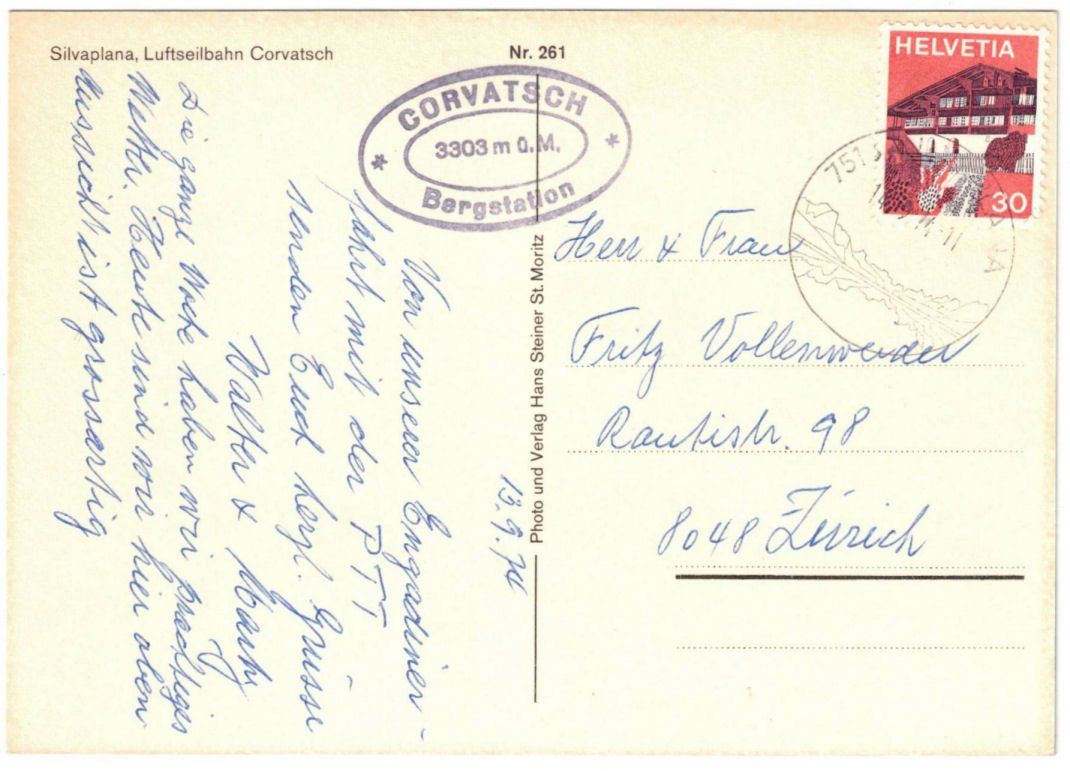 Silvaplana, Luftseilbahn Corvatsch
Nr. 261
CORVATSCH
3303 m ü.M.
Bergstation
HELVETIA
30
751
13.9.74
Von unserer Engadiner-
fahrt mit der PTT
senden Euch herzl. Grüsse
Walter &
Die ganze Woche haben wir prächtiges
Wetter. Heute sind wir hier oben
Aussicht ist grossartig
Photo und Verlag Hans Steiner St. Moritz
Herr & Frau
Fritz Vollenweider
Rautistr. 98
8048 Zürich